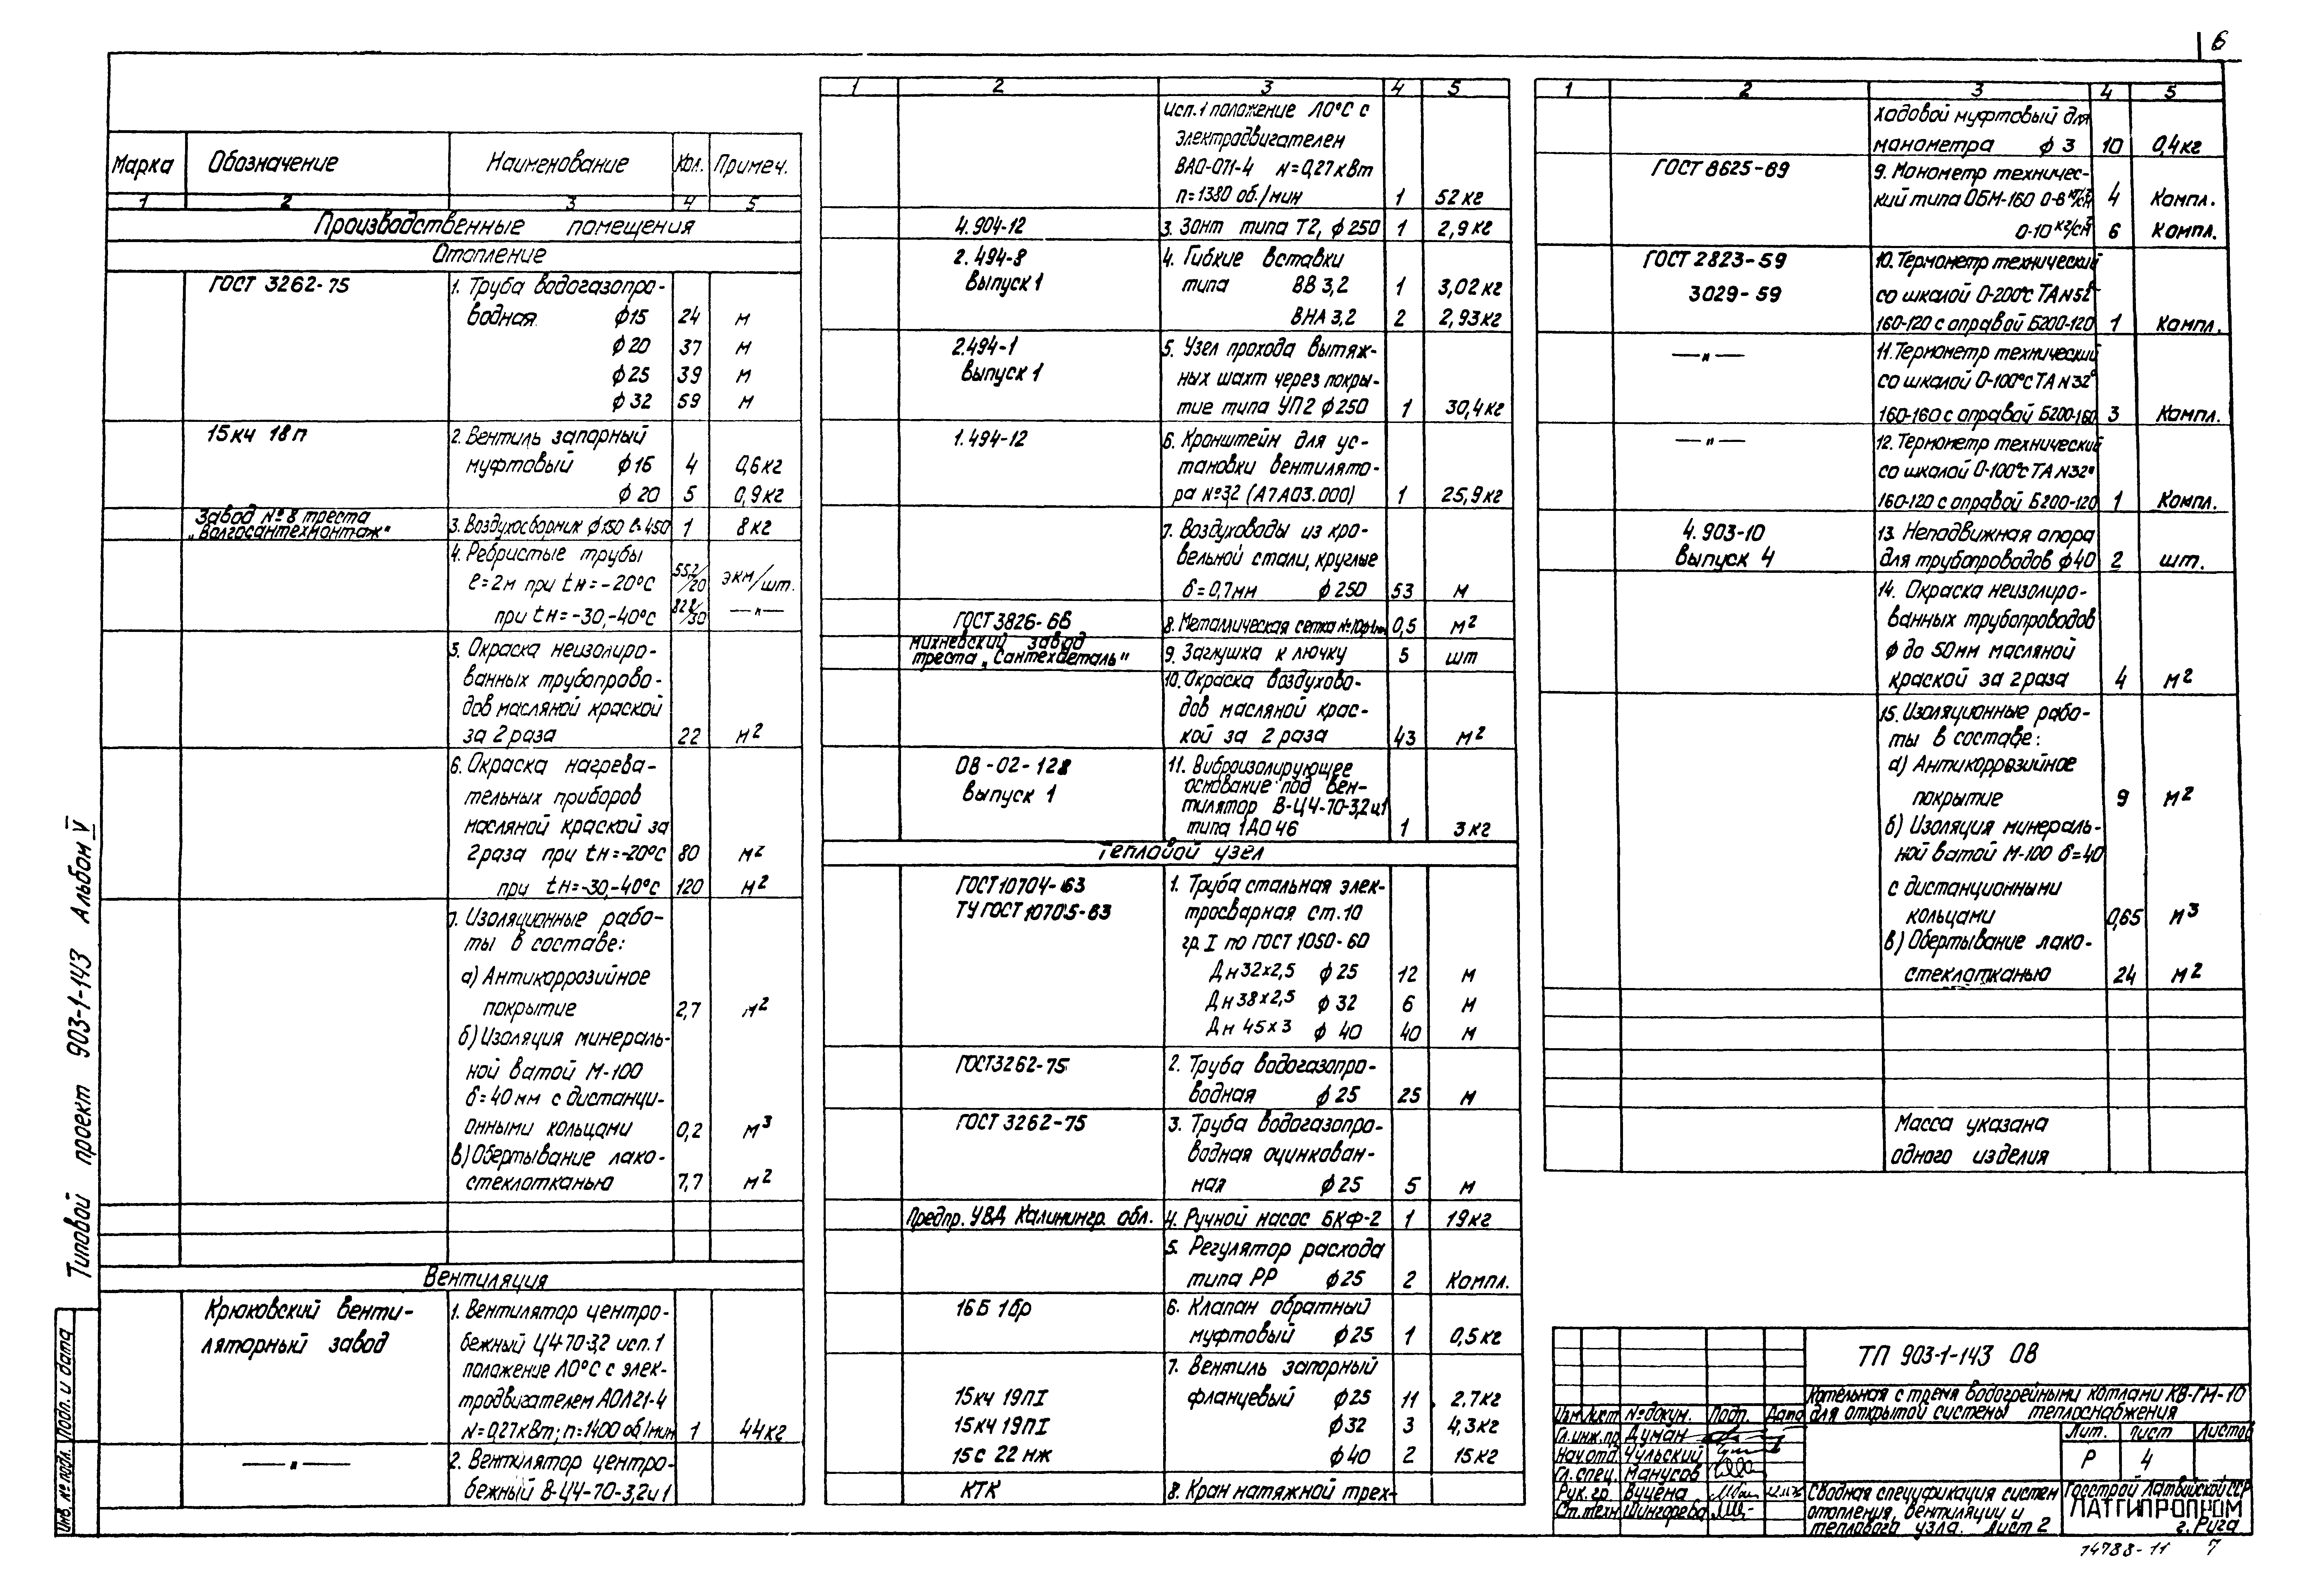 6
Типовой проект 903-1-143 Альбом V
Инв. № подл. Подп. и дата
Марка Обозначение Наименование Кол. Примеч.
1 2 3 4 5
Производственные помещения
Отопление
ГОСТ 3262-75 1. Труба водогазопро-
водная ф15 24 м
ф20 37 м
ф25 39 м
ф32 59 м
15кч 18п 2. Вентиль запорный
муфтовый ф15 4 0,6кг
ф20 5 0,9кг
Завод №8 треста
„Волгосантехмонтаж" 3. Воздухосборник ф150 ℓ=450 1 8кг
4. Ребристые трубы
ℓ=2м при tн=-20°С 55,2/20 экм/шт.
при tн=-30,-40°С 82,8/30 —"—
5. Окраска неизолиро-
ванных трубопрово-
дов масляной краской
за 2 раза 22 м2
6. Окраска нагрева-
тельных приборов
масляной краской за
2 раза при tн=-20°С 80 м2
при tн=-30,-40°С 120 м2
7. Изоляционные рабо-
ты в составе:
а) Антикоррозийное
покрытие 2,7 м2
б) Изоляция минераль-
ной ватой М-100
б=40мм с дистанци-
онными кольцами 0,2 м3
в) Обертывание лако-
стеклотканью 7,7 м2
Вентиляция
Крюковский венти-
ляторный завод
1. Вентилятор центро-
бежный Ц4-70-3,2 исп.1
положение Л0°С с элек-
тродвигателем АОЛ21-4
N=0,27кВт; n=1400 об/мин 1 44кг
—"— 2. Вентилятор центро-
бежный В-Ц4-70-3,2и1
1 2 3 4 5
исп.1 положение Л0°С с
электродвигателем
ВАО-071-4 N=0,27кВт
n=1380 об./мин 1 52кг
4.904-12 3. Зонт типа Т2, ф250 1 2,9кг
2.494-8 4. Гибкие вставки
выпуск 1 типа ВВ 3,2 1 3,02кг
ВНА 3,2 2 2,93кг
2.494-1 5. Узел прохода вытяж-
выпуск 1 ных шахт через покры-
тие типа УП2 ф250 1 30,4кг
1.494-12 6. Кронштейн для ус-
тановки вентилято-
ра №3,2 (А7А03.000) 1 25,9кг
7. Воздуховоды из кро-
вельной стали, круглые
б=0,7мм ф250 53 м
ГОСТ3826-66 8. Металлическая сетка 0,5 м2
Михневский завод
треста „Сантехдеталь" 9. Заглушка к лючку 5 шт
10. Окраска воздухово-
дов масляной крас-
кой за 2 раза 43 м2
ОВ-02-128 11. Виброизолирующее
выпуск 1 основание под вен-
тилятор В-Ц4-70-3,2и1
типа 1А046 1 3кг
Тепловой узел
ГОСТ10704-63 1. Труба стальная элек-
ТУ ГОСТ 10705-63 тросварная ст.10
гр.I по ГОСТ 1050-60
Дн32х2,5 ф25 12 м
Дн38х2,5 ф32 6 м
Дн 45х3 ф40 40 м
ГОСТ3262-75 2. Труба водогазопро-
водная ф25 25 м
ГОСТ 3262-75 3. Труба водогазопро-
водная оцинкован-
ная ф25 5 м
Предпр. УВД Калинингр. обл. 4. Ручной насос БКФ-2 1 19кг
5. Регулятор расхода
типа РР ф25 2 Компл.
16Б 1бр 6. Клапан обратный
муфтовый ф25 1 0,5кг
7. Вентиль запорный
15кч 19ПI фланцевый ф25 11 2.7кг
15кч 19ПI ф32 3 4,3кг
15с 22 нж ф40 2 15кг
КТК 8. Кран натяжной трех-
1 2 3 4 5
ходовой муфтовый для
манометра ф3 10 0,4кг
ГОСТ 8625-69 9. Монометр техничес-
кий типа ОБМ-160 0-6 кг/см2 4 Компл.
0-10 кг/см2 6 Компл.
ГОСТ 2823-59 10. Термометр технический
3029-59 со шкалой 0-200°С ТА №52°
160-120 с оправой Б200-120 1 Компл.
—"— 11. Термометр технический
со шкалой 0-100°С ТА №32°
160-160 с оправой Б200-160 3 Компл.
—"— 12. Термометр технический
со шкалой 0-100°С ТА №32°
160-120 с оправой Б200-120 1 Компл.
4.903-10 13. Неподвижная опора
выпуск 4 для трубопроводов ф40 2 шт.
14. Окраска неизолиро-
ванных трубопроводов
ф до 50мм масляной
краской за 2 раза 4 м2
15. Изоляционные рабо-
ты в составе:
а) Антикоррозийное
покрытие 9 м2
б) Изоляция минераль-
ной ватой М-100 б=40
с дистанционными
кольцами 0,65 м3
в) Обертывание лако-
стеклотканью 24 м2
Масса указана
одного изделия
ТП 903-1-143 ОВ
Котельная с тремя водогрейными котлами КВ-ГМ-10
для открытой системы теплоснабжения
Изм Лист № докум. Подп. Дата
Гл.инж.пр Думан
Нач.отд. Чульский
Гл.спец. Манусов
Рук.гр Вицена
Ст.техн Шингарева
Лит. Лист Листов
Р 4
Сводная спецификация систем
отопления, вентиляции и
теплового узла. Лист 2
Госстрой Латвийской ССР
ЛАТГИПРОПРОМ
г. Рига
14788-11 7